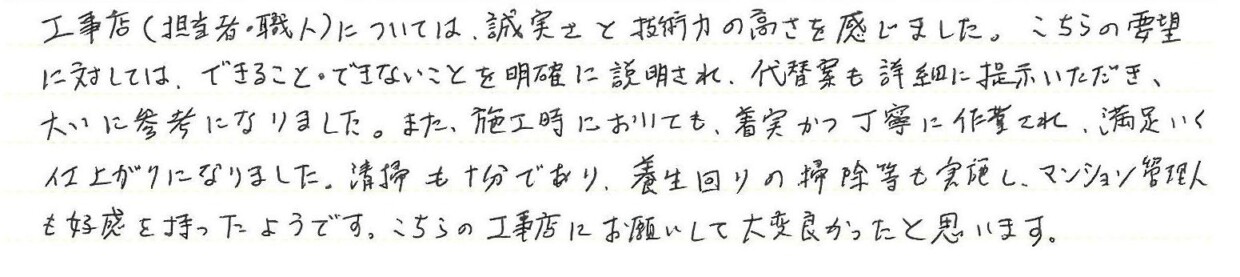 工事店(担当者・職人)については、誠実さと技術力の高さを感じました。こちらの要望
に対しては、できること・できないことを明確に説明され、代替案も詳細に提示いただき、
大いに参考になりました。また、施工時においても、着実かつ丁寧に作業され、満足いく
仕上がりになりました。清掃も十分であり、養生回りの掃除等も実施し、マンション管理人
も好感を持ったようです。こちらの工事店にお願いして大変良かったと思います。